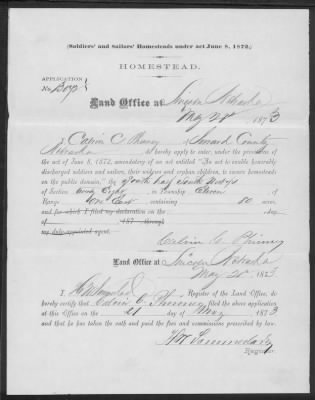 (Soldiers' and Sailors' Homesteads under act June 8, 1872.)
HOMESTEAD.
APPLICATION
No.
Land Office at Lincoln Nebraska
May 1873
I, Calvin C. of Seward County
Nebraska do hereby apply to enter, under the provisions of
the act of June 8, 1872, amendatory of an act entitled "An act to enable honorably
discharged soldiers and sailors, their widows and orphan children, to acquire homesteads
on the public domain," the South half South
of Section Twenty Eight, in Township Eleven of
Range One East, containing 80 acres,
and for which I filed my declaration on the day
of 187 through
my duly appointed agent.
Calvin C.
Land Office at Lincoln Nebraska
May 1873
I, Register of the Land Office, do
hereby certify that Calvin C. filed the above application
at this Office on the 21 day of May 1873
and that he has taken the oath and paid the fees and commissions prescribed by law.
Register.